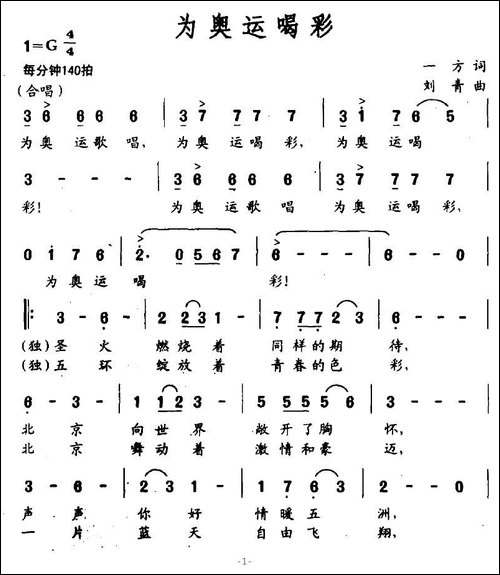 为奥运喝彩
1=G 4/4
每分钟140拍
一 方 词
刘 青 曲
(合唱)
3 6 6 6 6 | 3 7 7 7 7 | 3 1 7 6 5 |
为奥 运歌唱, 为奥 运喝彩, 为奥 运喝
3 - - - | 3 6 6 6 6 6 | 3 7 7 7 7 7 |
彩! 为奥 运歌唱 为奥 运喝彩,
0 1 7 6 | 2· 0 5 6 7 | 6 - - - | 6 - - 0
为奥运 喝 彩!
‖: 3 - 6 - | 2 2 3 1 - | 7 7 7 2 3 | 6 - - - |
(独)圣 火 燃烧着 同样的期 待,
(独)五 环 绽放着 青春的色 彩,
6 - 3 - | 1 1 2 3 - | 5 5 5 5 6 | 3 - - - |
北 京 向世界 敞开了胸 怀,
北 京 舞动着 激情和豪 迈,
3 - 6 - | 2 3 1 - | 1 7 6 3 | 2 - - 0 |
声 声 你 好 情暖五 洲,
一 片 蓝 天 自由飞 翔,
-1-